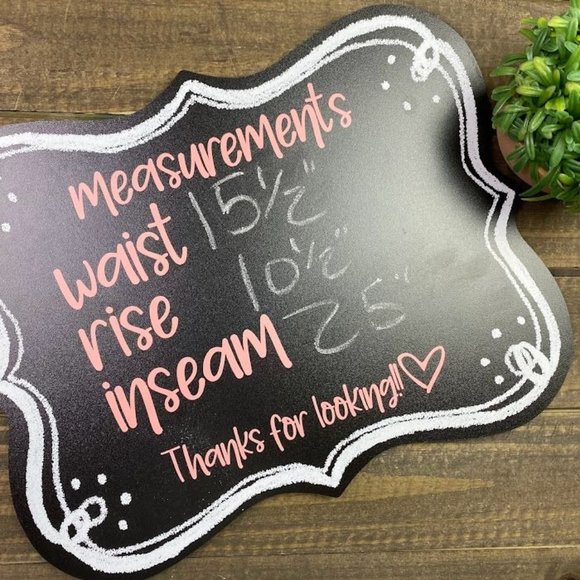 measurements
waist 15½"
rise 10½"
inseam 25"
Thanks for looking!!